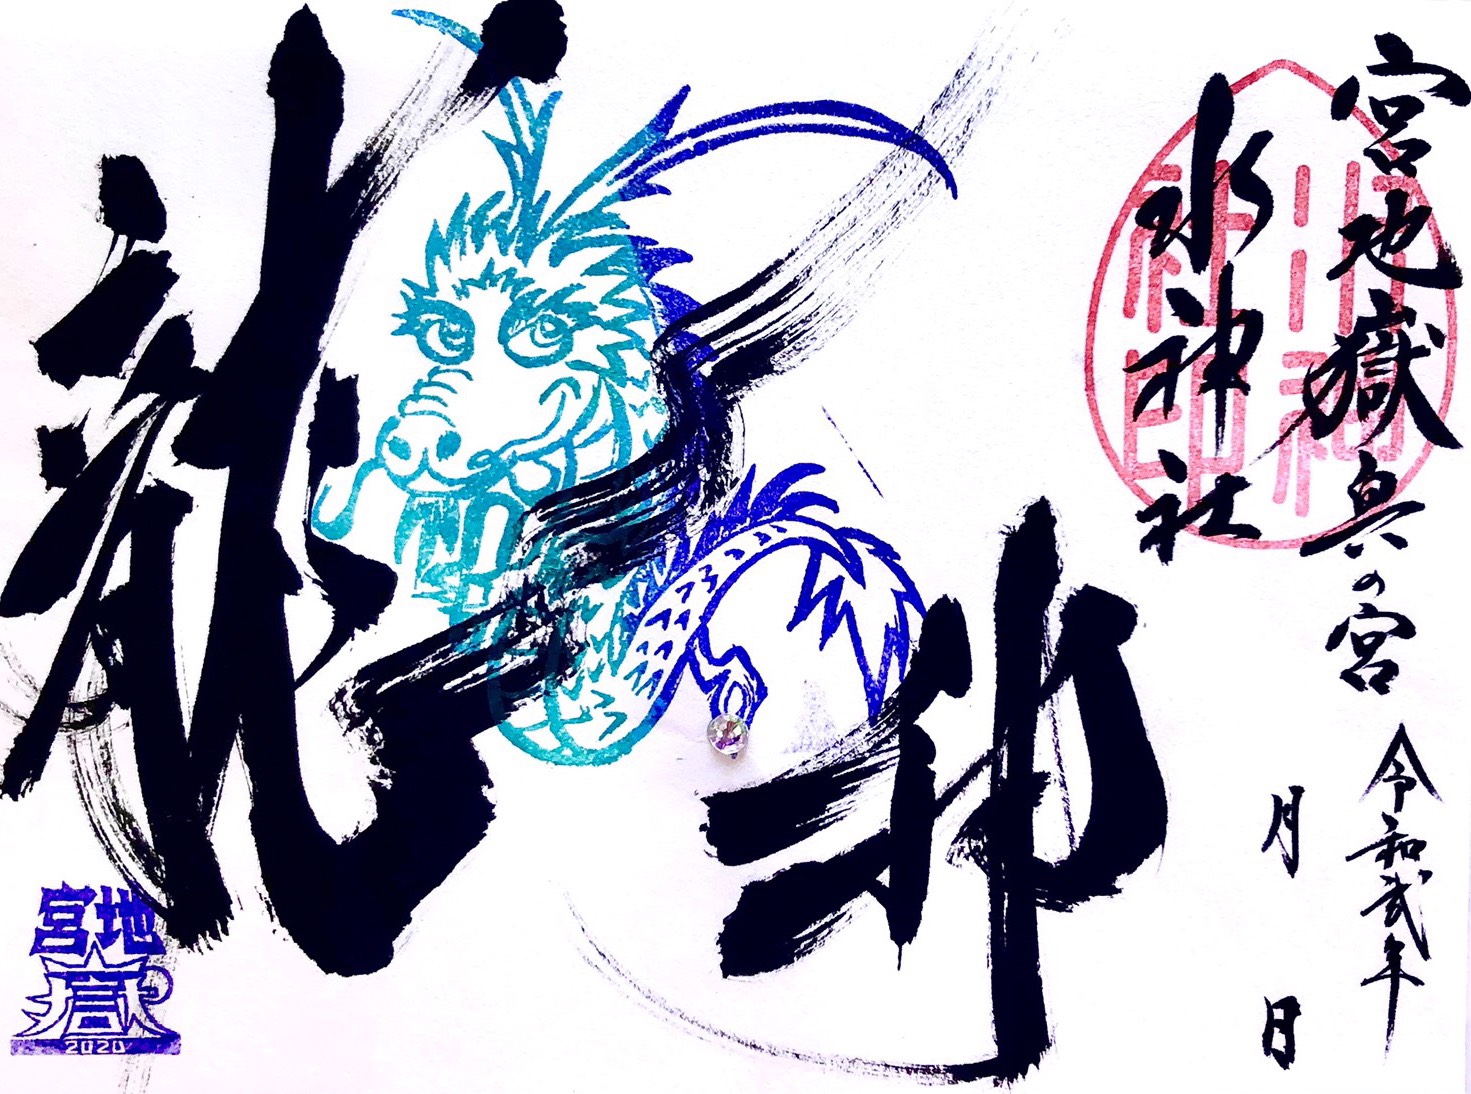 宮地嶽奥の宮
水神社
水神
社印
令和貳年
月　日
龍神
宮地
嶽
2020